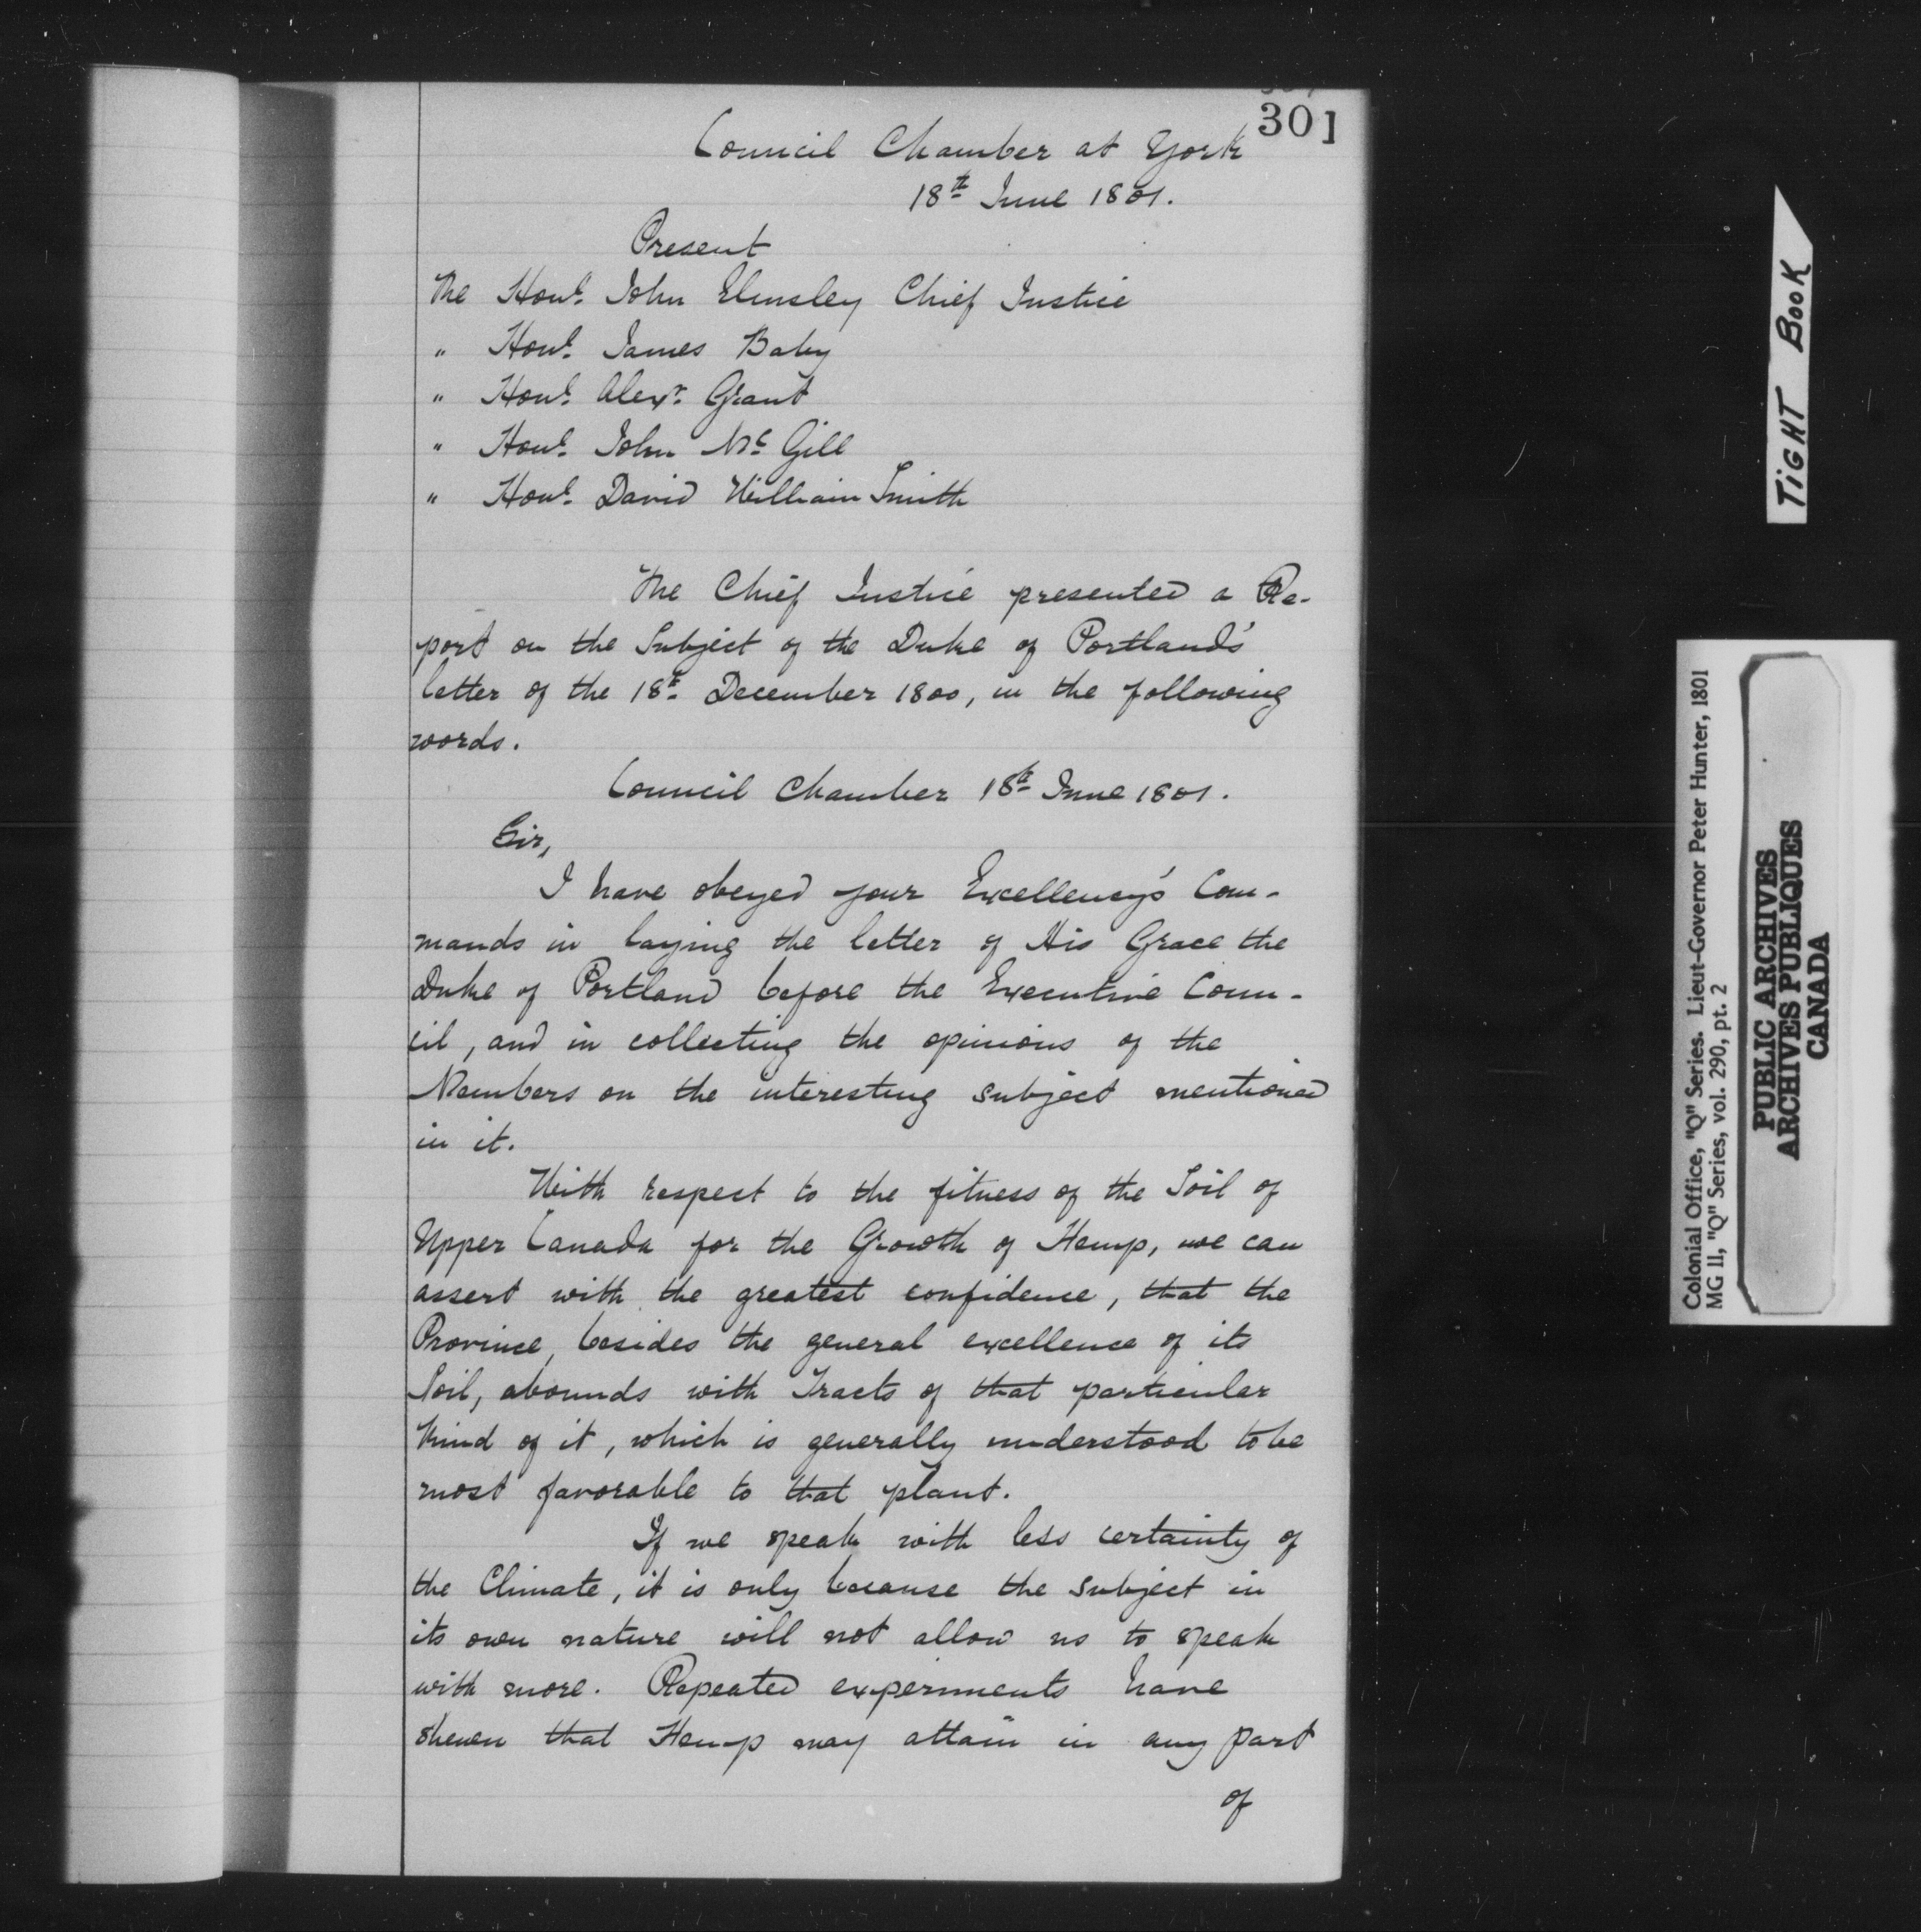 301
Council Chamber at York
18th June 1801.
Present
The Honl. John Elmsley Chief Justice
" Honl. James Baby
" Honl. Alexr. Grant
" Honl. John Mc Gill
" Honl. David William Smith
The Chief Justice presented a Re-
port on the Subject of the Duke of Portland's
letter of the 18th December 1800, in the following
words.
Council Chamber 18th June 1801.
Sir,
I have obeyed your Excellency's Com-
mands in laying the letter of His Grace the
Duke of Portland before the Executive Coun-
cil, and in collecting the opinions of the
Members on the interesting subject mentioned
in it.
With respect to the fitness of the Soil of
Upper Canada for the Growth of Hemp, we can
assert with the greatest confidence, that the
Province, besides the general excellence of its
Soil, abounds with Tracts of that particular
kind of it, which is generally understood to be
most favorable to that plant.
If we speak with less certainty of
the Climate, it is only because the subject in
its own nature will not allow us to speak
with more. Repeated experiments have
shewn that Hemp may attain in any part
of
TIGHT BOOK
Colonial Office, "Q" Series. Lieut-Governor Peter Hunter, 1801
MG 11, "Q" Series, vol. 290, pt. 2
PUBLIC ARCHIVES
ARCHIVES PUBLIQUES
CANADA